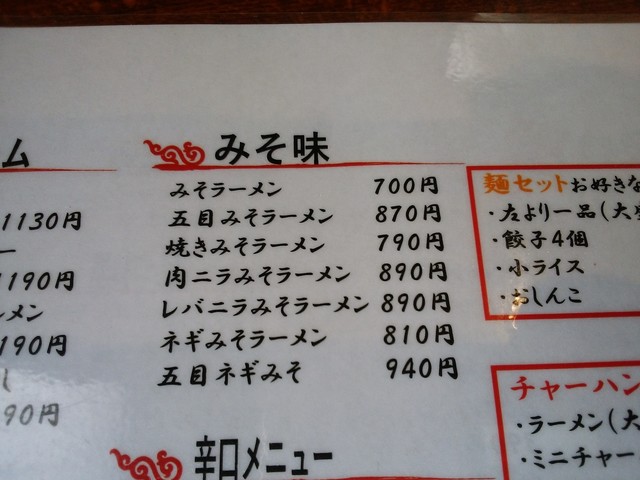 ム
1130円
ー
1190円
メン
190円
し
90円
みそ味
みそラーメン 700円
五目みそラーメン 870円
焼きみそラーメン 790円
肉ニラみそラーメン 890円
レバニラみそラーメン 890円
ネギみそラーメン 810円
五目ネギみそ 940円
辛口メニュー
麺セットお好きな
・左より一品(大
・餃子4個
・小ライス
・おしんこ
チャーハン
・ラーメン(大
・ミニチャー